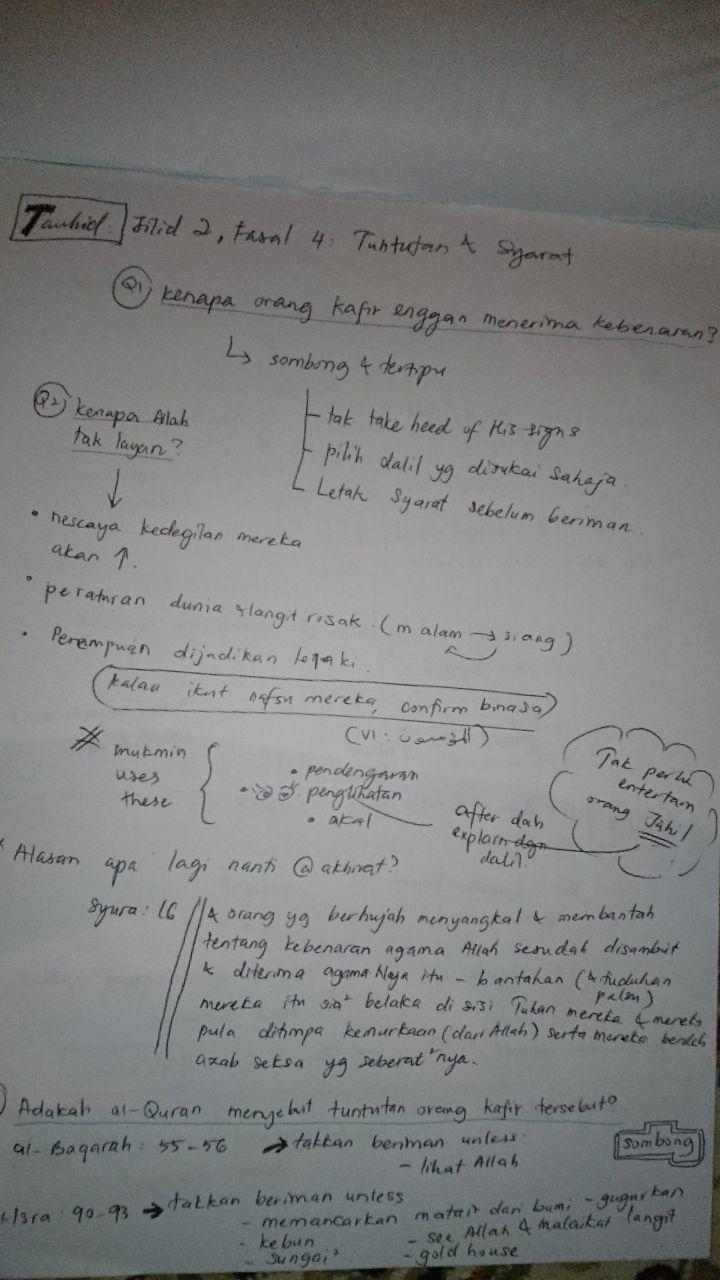 Tauhid: Jilid 2, Fasal 4: Tuntutan & Syarat
Q1 kenapa orang kafir enggan menerima kebenaran?
↳ sombong & tertipu
- tak take heed of His signs
- pilih dalil yg disukai sahaja.
- Letak syarat sebelum beriman.
Q2 kenapa Allah
tak layan?
↓
• nescaya kedegilan mereka
akan ↑.
• peraturan dunia & langit rosak. (malam → siang)
• Perempuan dijadikan lelaki.
kalau ikut nafsu mereka, confirm binasa
(المؤمنون : ٧١)
* mukmin
uses
these
• pendengaran
• penglihatan
• akal
after dah
explain dgn
dalil.
Tak perlu
entertain
orang Jahil
Alasan apa lagi nanti @ akhirat?
Syura: 16 // & orang yg berhujah menyangkal & membantah
tentang kebenaran agama Allah sesudah disambut
& diterima agamaNya itu - bantahan (& tuduhan
palsu)
mereka itu sia² belaka di sisi Tuhan mereka. & mereka
pula ditimpa kemurkaan (dari Allah) serta mereka beroleh
azab seksa yg seberat²nya.
Adakah al-Quran menyebut tuntutan orang kafir tersebut?
al-Baqarah: 55-56 → takkan beriman unless:
- lihat Allah
sombong
Isra: 90-93 → takkan beriman unless
- memancarkan matair dari bumi - gugurkan
langit
- kebun - see Allah & malaikat
- sungai² - gold house